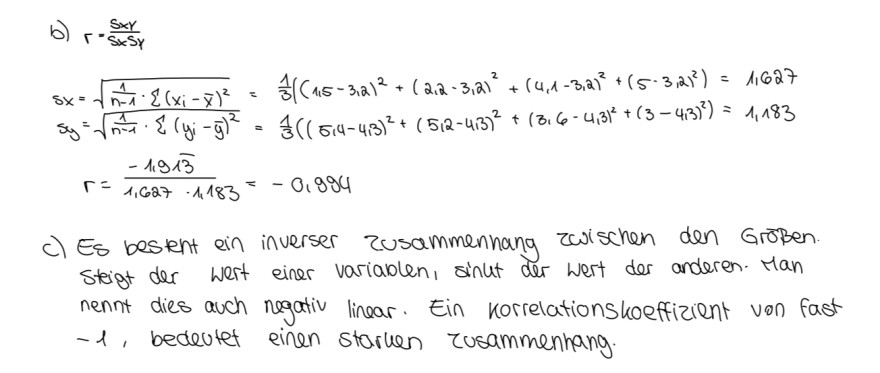 b) r = sxy / sxsy
sx = √(1/n-1 · Σ(xi - x̄)²) = 1/3((1,5-3,2)² + (2,2-3,2)² + (4,1-3,2)² + (5-3,2)²) = 1,627
sy = √(1/n-1 · Σ(yi - ȳ)²) = 1/3((5,4-4,3)² + (5,2-4,3)² + (3,6-4,3)² + (3-4,3)²) = 1,183
r = -1,913̅ / 1,627 · 1,183 = -0,994
c) Es besteht ein inverser Zusammenhang zwischen den Größen.
Steigt der Wert einer Variablen, sinkt der Wert der anderen. Man
nennt dies auch negativ linear. Ein Korrelationskoeffizient von fast
-1, bedeutet einen starken Zusammenhang.